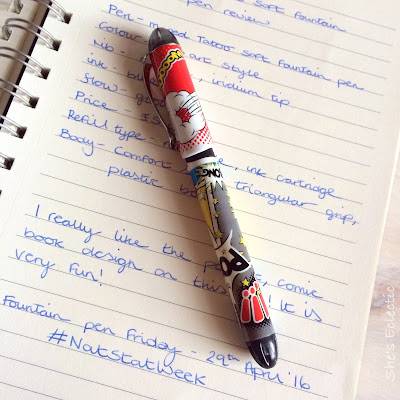 soft fountain
pen review
Pen - Mood Taboo soft fountain pen
Colour
Nib - art style
ink - iridium tip
flow -
Price -
Refill type - ink cartridge
Body - Comfort triangular grip,
plastic
I really like the comic
book design on this It is
very fun!
Fountain pen Friday - 29th April '16
#NatStatWeek
ZOOM
PO
She's Eclectic